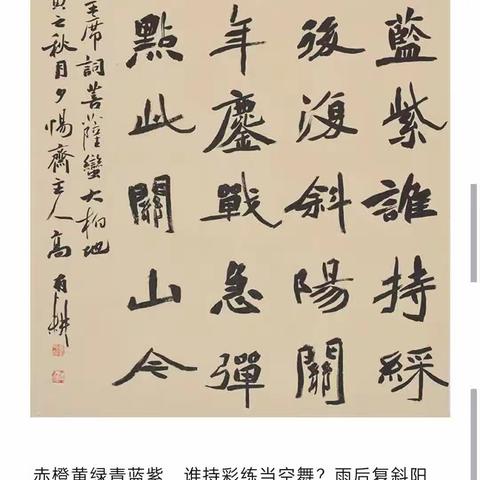 藍紫誰持綵
後復斜陽關
年鏖戰急彈
點此關山今
主席詞菩薩蠻大柏地
寅之秋月夕惕齋主人高
赤橙黄绿青蓝紫 谁持彩练当空舞？雨后复斜阳